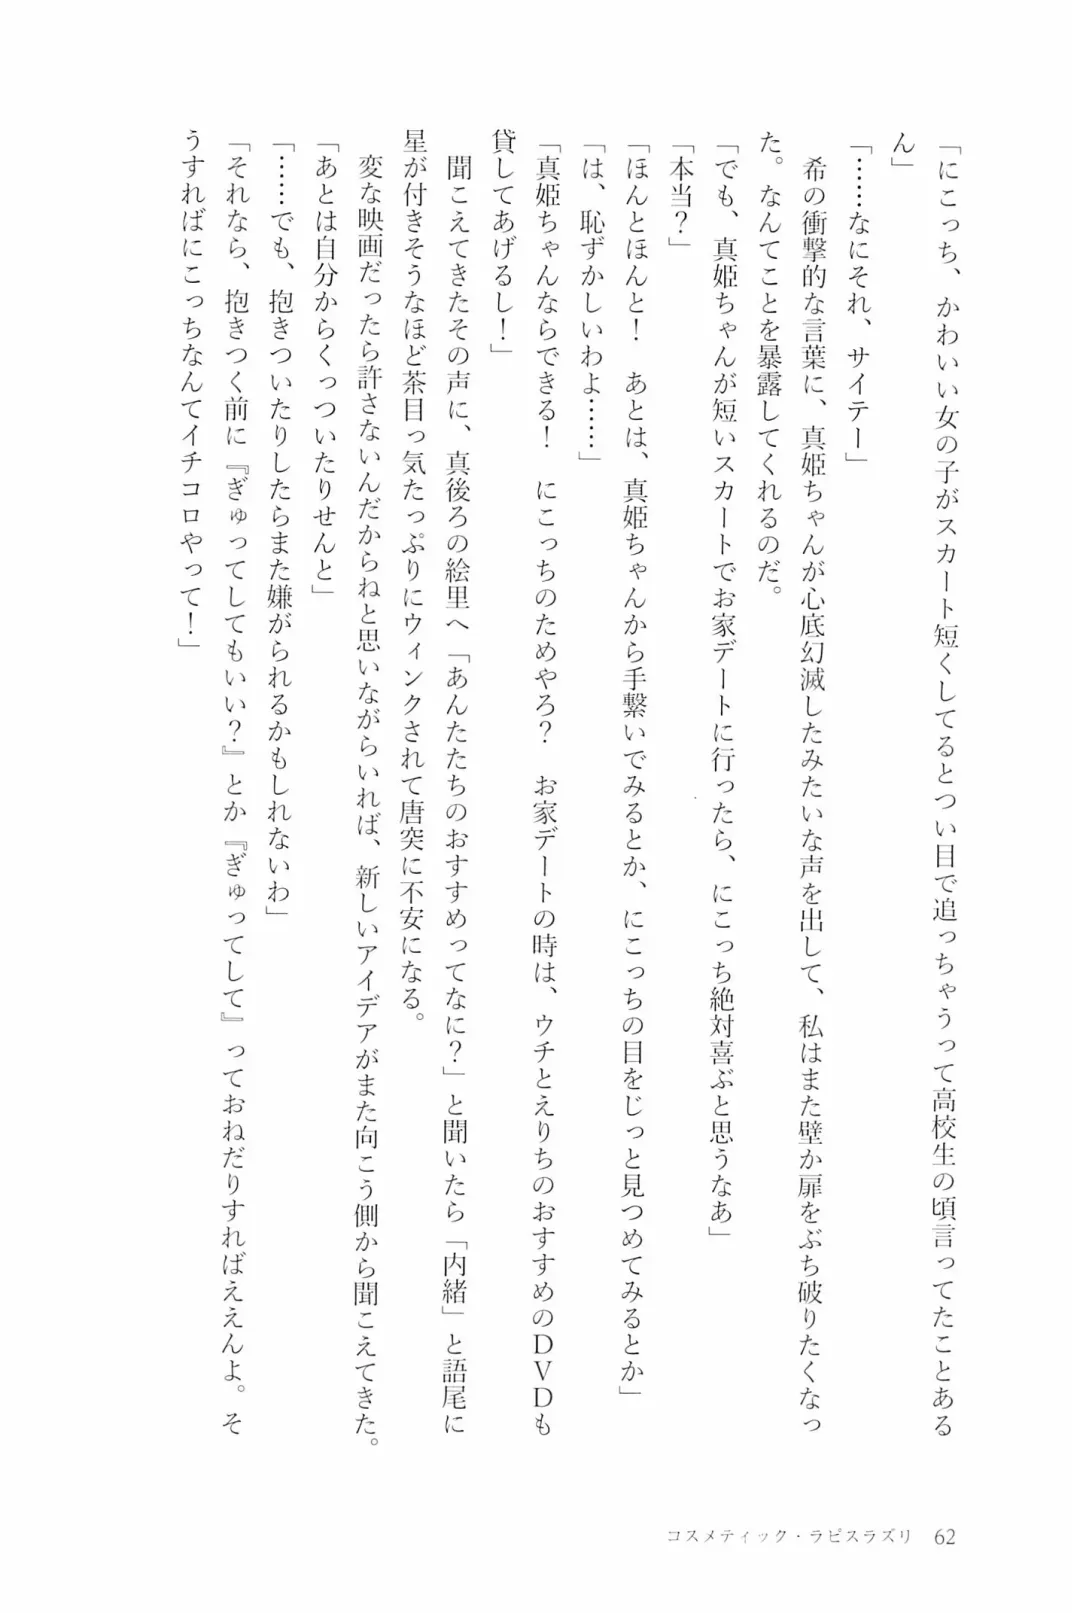 「にこっち、かわいい女の子がスカート短くしてるとつい目で追っちゃうって高校生の頃言ってたことある
ん」
「……なにそれ、サイテー」
　希の衝撃的な言葉に、真姫ちゃんが心底幻滅したみたいな声を出して、私はまた壁か扉をぶち破りたくなっ
た。なんてことを暴露してくれるのだ。
「でも、真姫ちゃんが短いスカートでお家デートに行ったら、にこっち絶対喜ぶと思うなあ」
「本当？」
「ほんとほんと！　あとは、真姫ちゃんから手繋いでみるとか、にこっちの目をじっと見つめてみるとか」
「は、恥ずかしいわよ……」
「真姫ちゃんならできる！　にこっちのためやろ？　お家デートの時は、ウチとえりちのおすすめのＤＶＤも
貸してあげるし！」
　聞こえてきたその声に、真後ろの絵里へ「あんたたちのおすすめってなに？」と聞いたら「内緒」と語尾に
星が付きそうなほど茶目っ気たっぷりにウィンクされて唐突に不安になる。
　変な映画だったら許さないんだからねと思いながらいれば、新しいアイデアがまた向こう側から聞こえてきた。
「あとは自分からくっついたりせんと」
「……でも、抱きついたりしたらまた嫌がられるかもしれないわ」
「それなら、抱きつく前に『ぎゅってしてもいい？』とか『ぎゅってして』っておねだりすればええんよ。そ
うすればにこっちなんてイチコロやって！」
コスメティック・ラピスラズリ　62